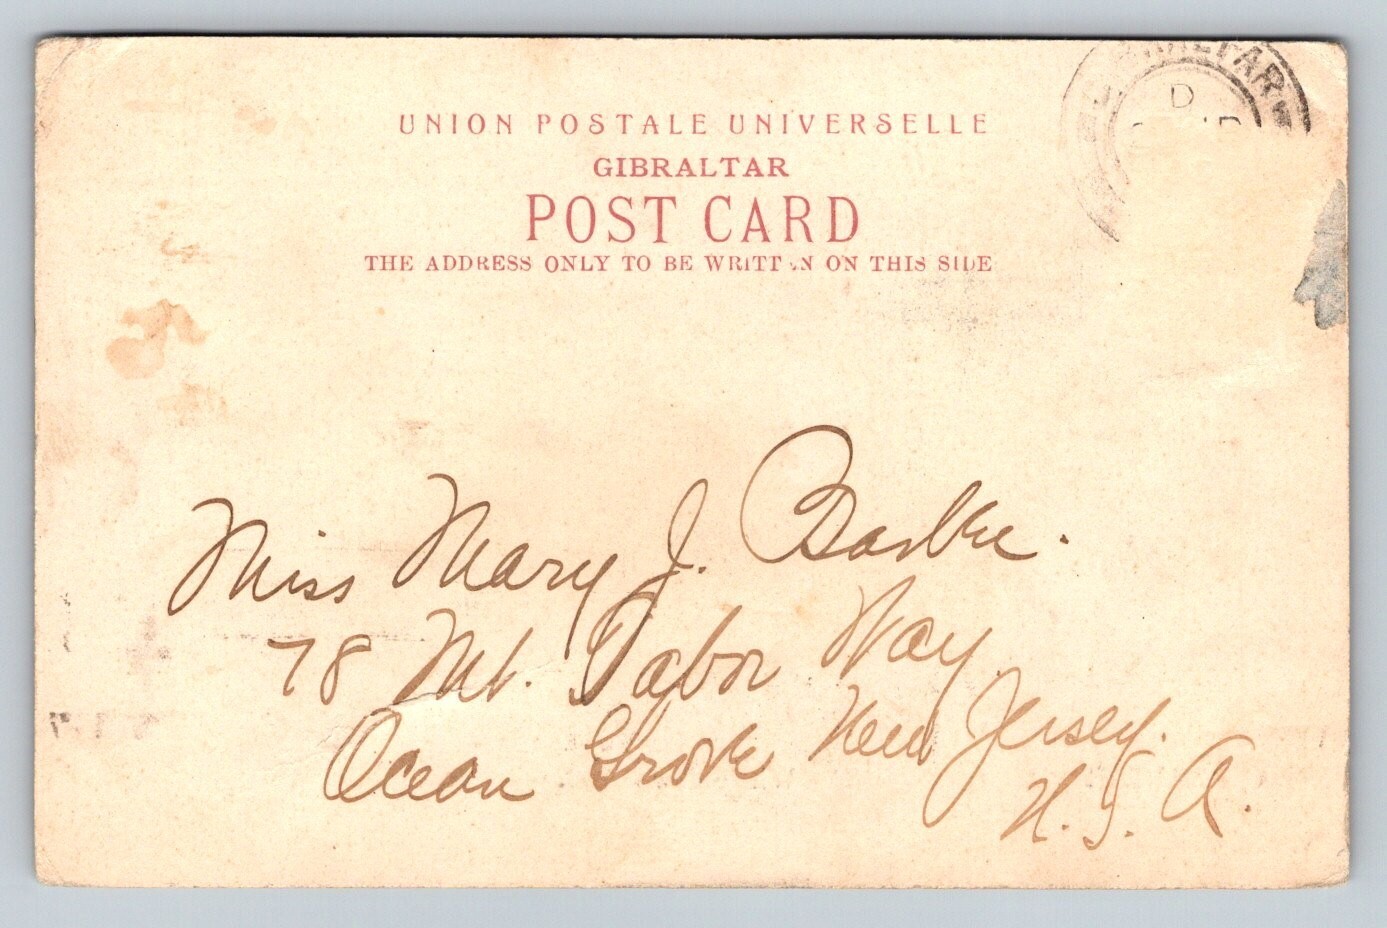 GIBRALTAR
D
UNION POSTALE UNIVERSELLE
GIBRALTAR
POST CARD
THE ADDRESS ONLY TO BE WRITTEN ON THIS SIDE
Miss Mary J. Barkre.
78 Mt. Tabor Way
Ocean Grove New Jersey.
U.S.A.